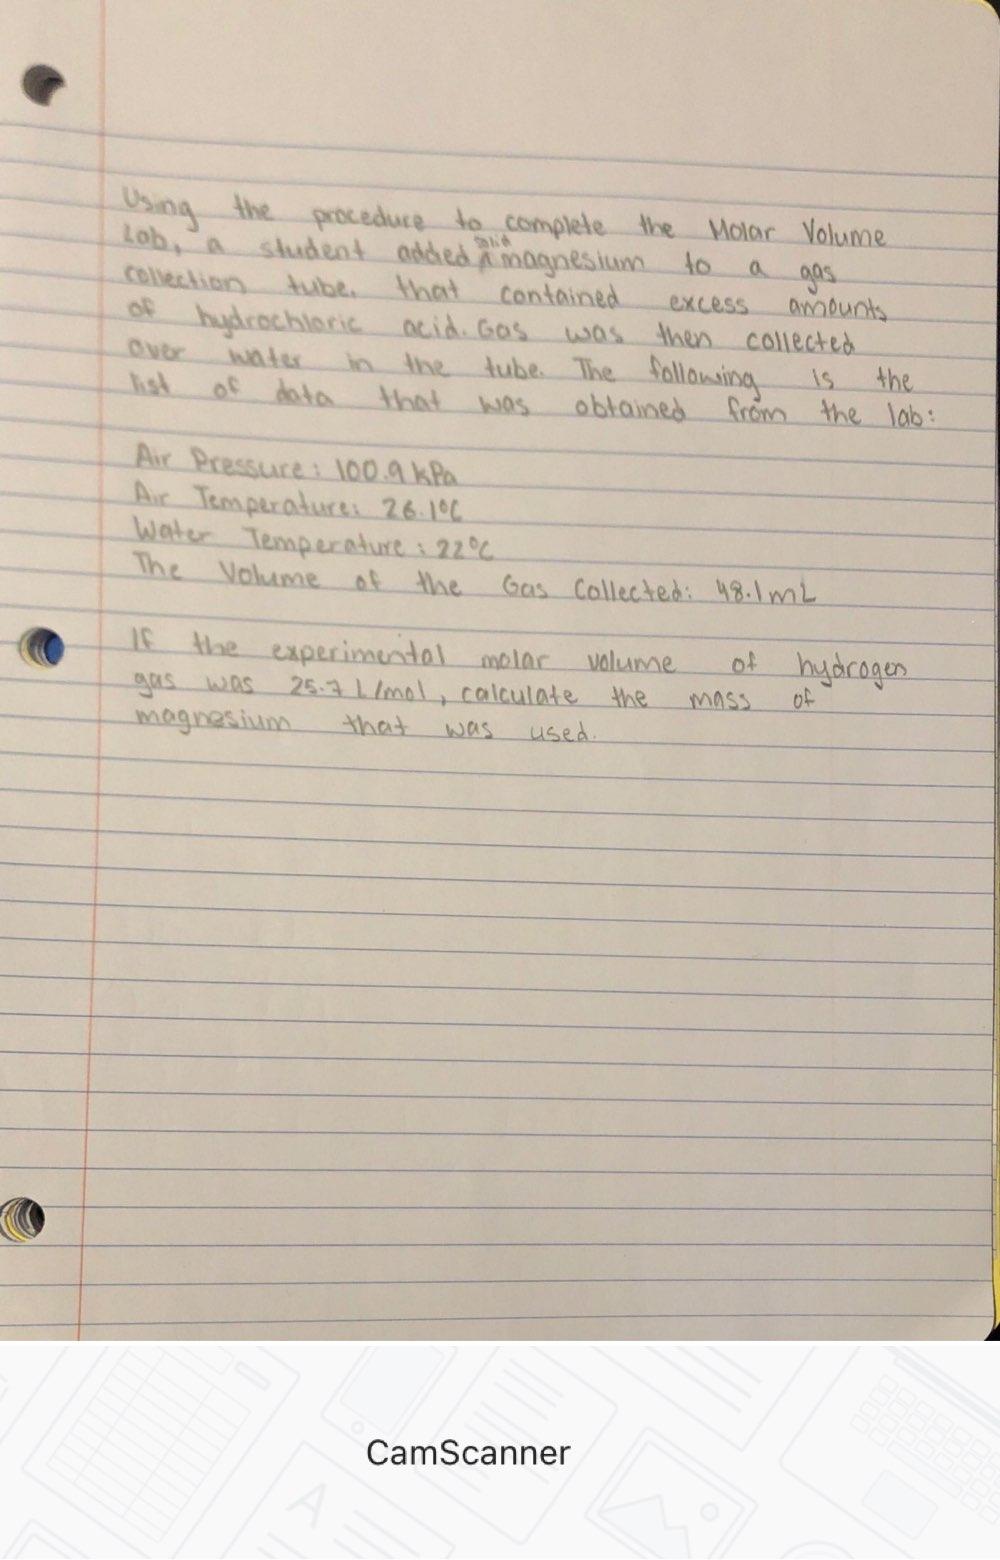 Using the procedure to complete the Molar Volume
Lab, a student added solid magnesium to a gas
collection tube. that contained excess amounts
of hydrochloric acid. Gas was then collected
over water in the tube. The following is the
list of data that was obtained from the lab:
Air Pressure: 100.9 kPa
Air Temperature: 26.1°C
Water Temperature: 22°C
The Volume of the Gas Collected: 48.1mL
If the experimental molar volume of hydrogen
gas was 25.7 L/mol, calculate the mass of
magnesium that was used.
CamScanner